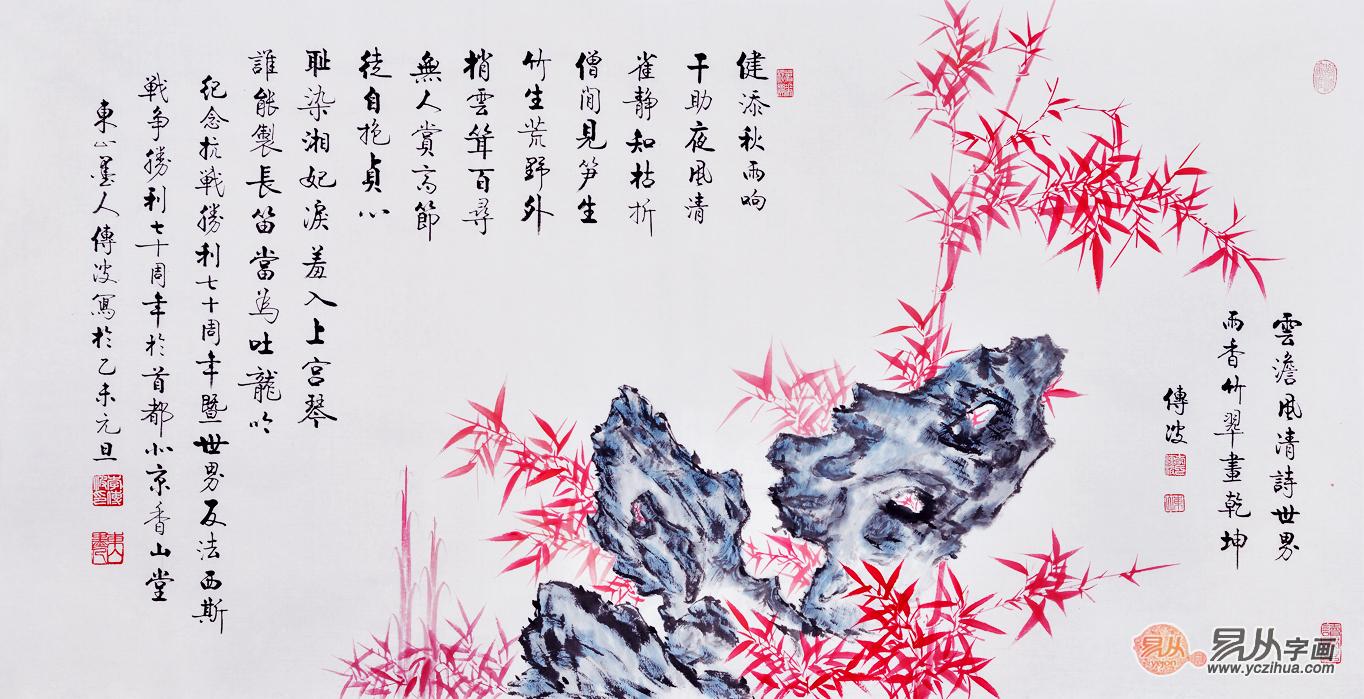 雲澹風清詩世界
雨香竹翠畫乾坤
傳波
健添秋雨响
干助夜風清
雀静知枯折
僧閒見笋生
竹生荒野外
梢雲聳百尋
無人賞高節
徒自抱貞心
耻染湘妃淚羞入上宫琴
誰能製長笛當為吐龍吟
纪念抗戰勝利七十周年暨世界反法西斯
戰争勝利七十周年於首都北京香山堂
東山墨人傳波寫於乙未元旦
易从字画
www.yczihua.com